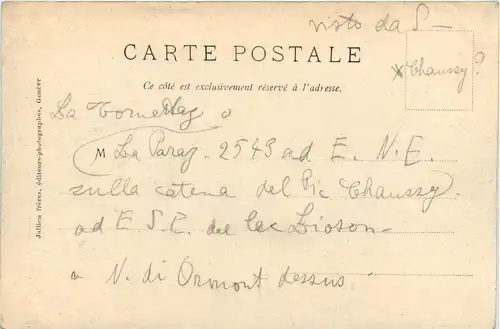 visto da S -
CARTE POSTALE
x Chaussy?
Ce côté est exclusivement réservé à l'adresse.
La Tornettaz o
M La Paraz. 2549 ad E. N. E.
sulla catena del Pic Chaussy.
ad E S. E. del lac Lioson
a N. di Ormont dessus
Jullien frères, éditeurs-photographes, Genève